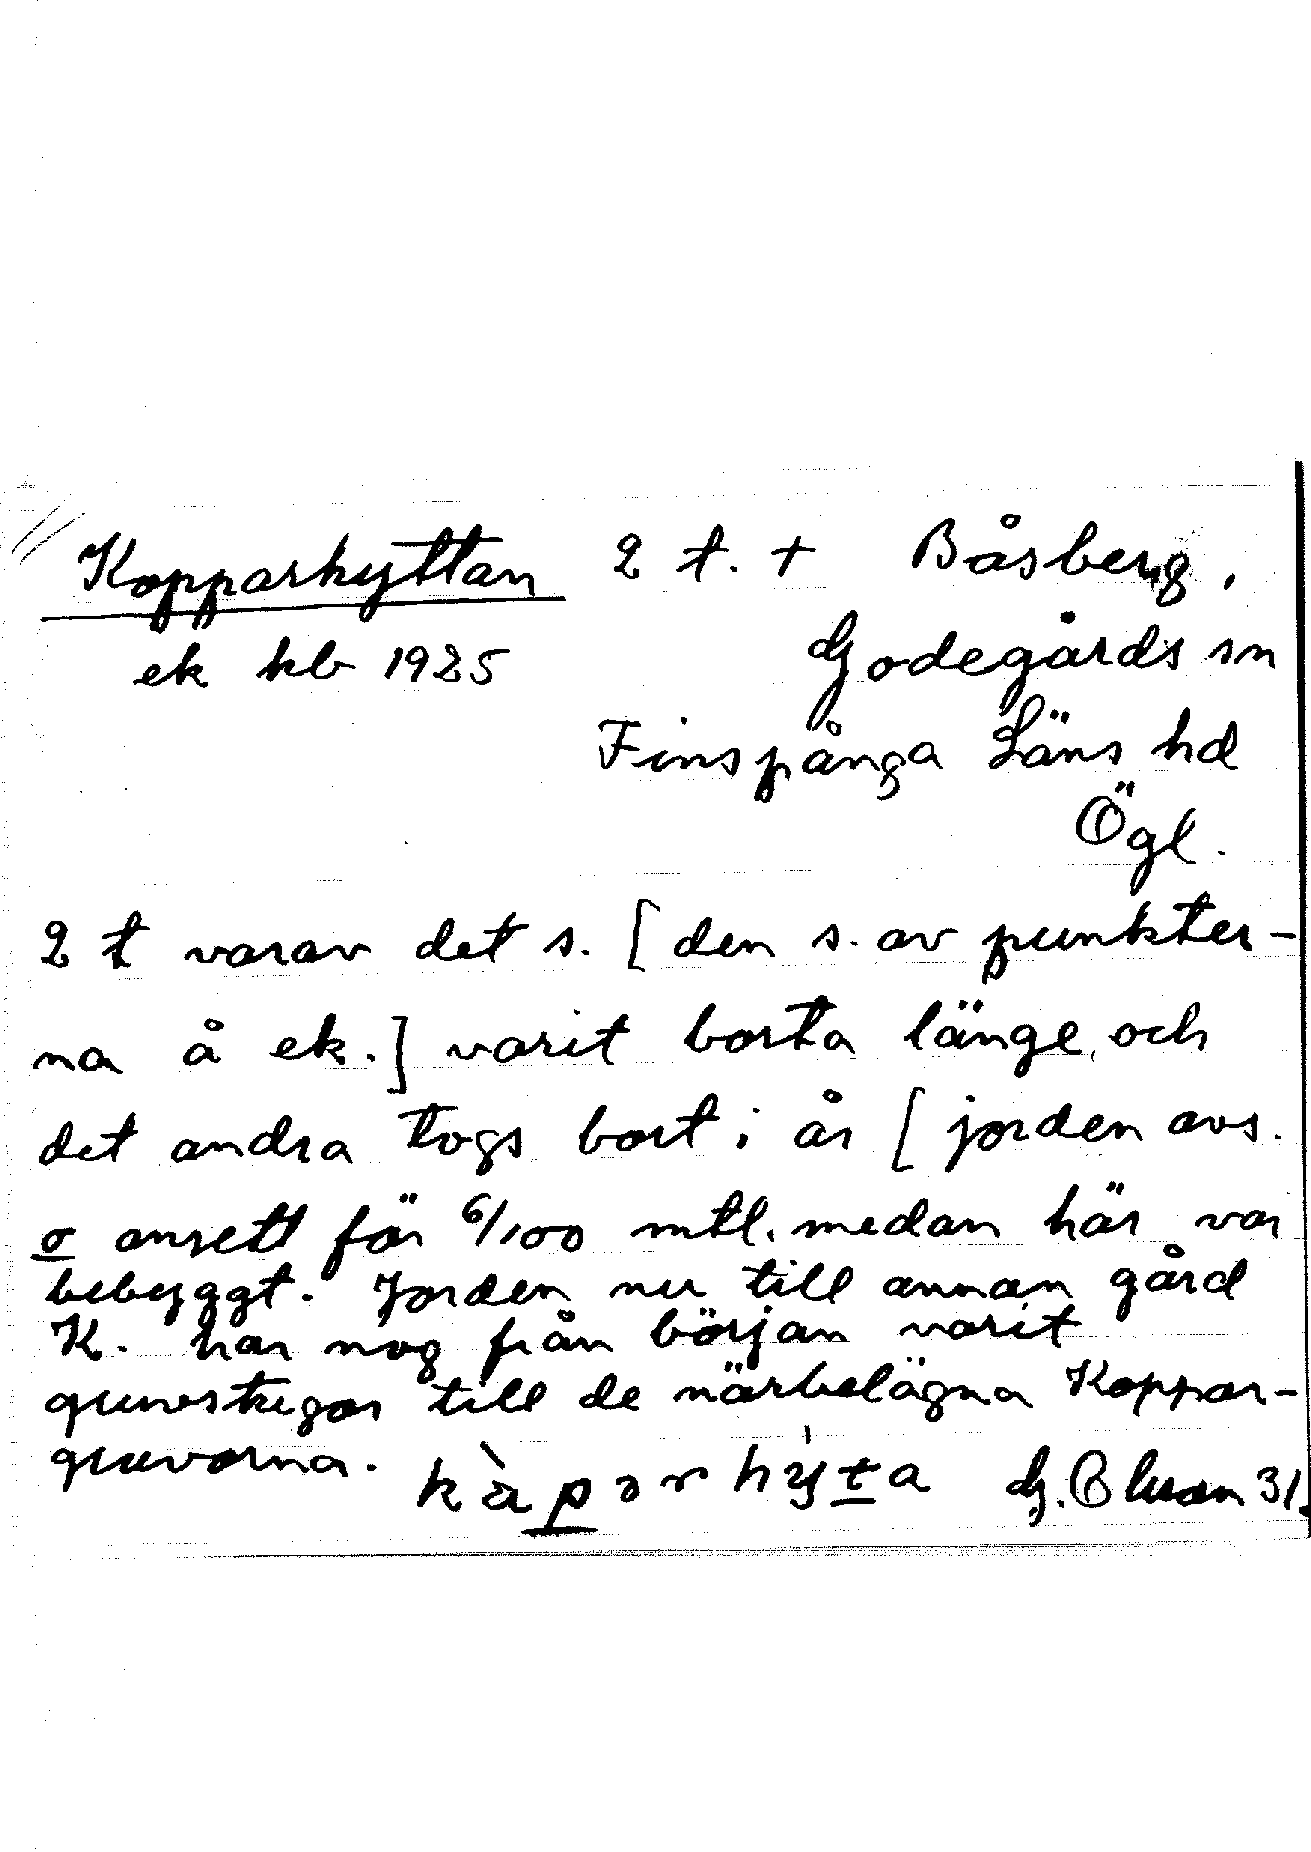 Kopparhyttan 2 t. + Båsberg,
ek kb 1925 Godegårds sn
Finspånga Läns hd
Ögl.
2 t varav det s. [den s. av punkter-
na å ek.] varit borta länge, och
det andra togs bort i år [jorden avs.
o ansett för 6/100 mtl. medan här var
bebyggt. Jorden nu till annan gård
K. har nog från början varit
gruvstugor till de närbelägna Koppar-
gruvorna. G. 31.